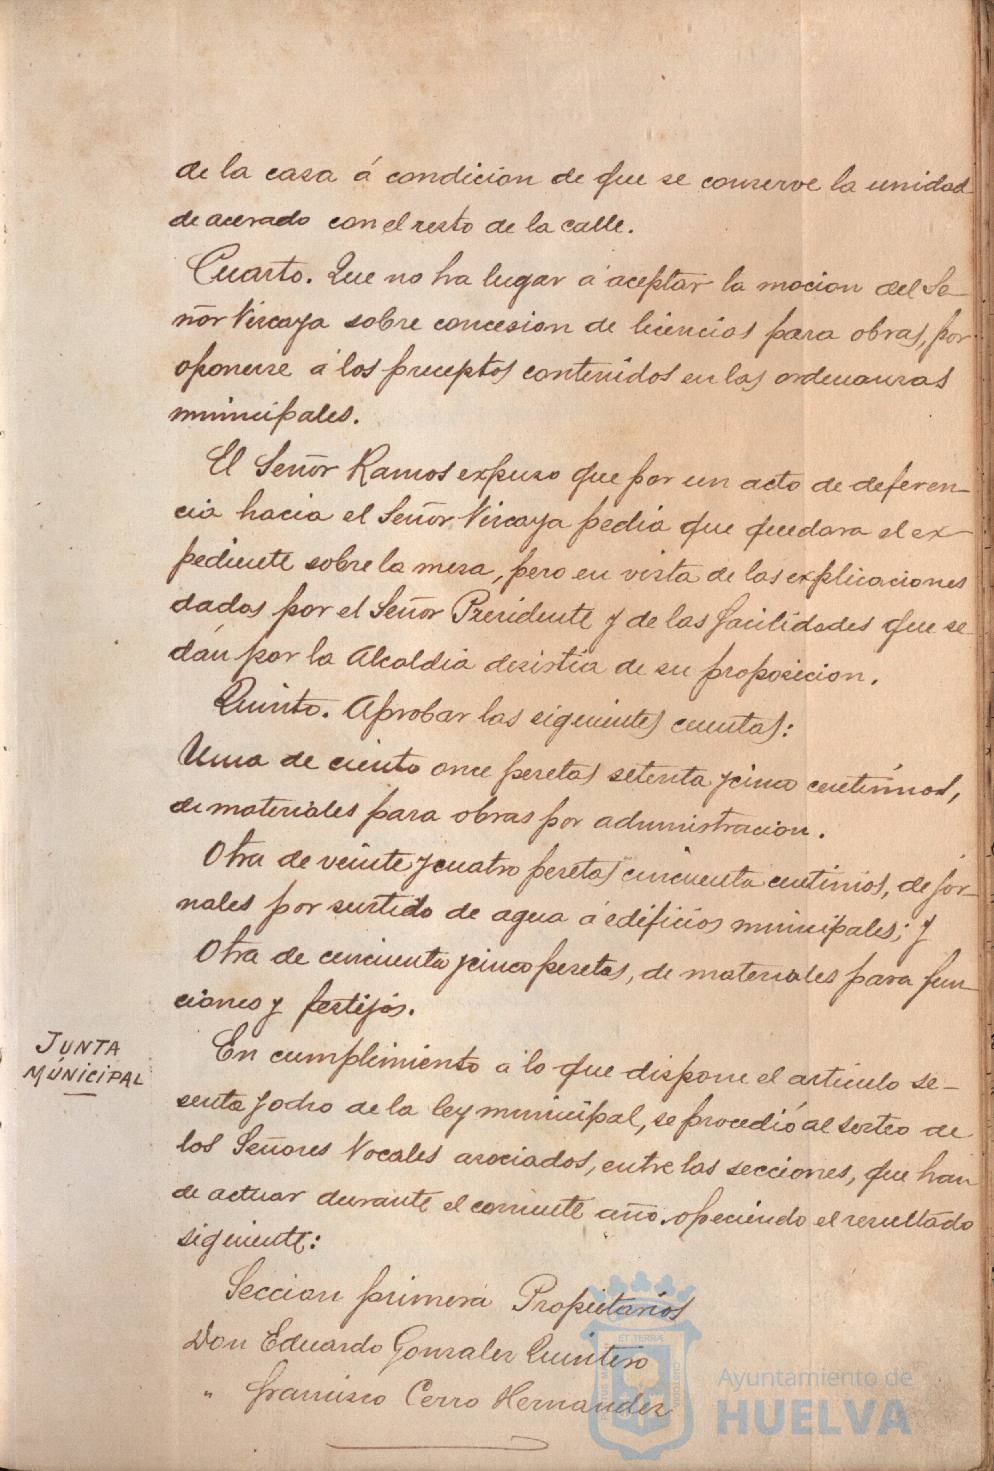 de la casa á condicion de que se conserve la unidad
de acerado con el resto de la calle.
Cuarto. Que no ha lugar á aceptar la mocion del Se-
ñor Vizcaya sobre concesion de licencias para obras, por
oponerse á los preceptos contenidos en las ordenanzas
municipales.
El Señor Ramos expuso que por un acto de deferen-
cia hacia el Señor Vizcaya pedia que quedara el ex-
pediente sobre la mesa, pero en vista de las explicaciones
dadas por el Señor Presidente y de las facilidades que se
dán por la Alcaldia desistia de su proposicion.
Quinto. Aprobar las siguientes cuentas:
Una de ciento once pesetas setenta y cinco centimos,
de materiales para obras por administracion.
Otra de veinte y cuatro pesetas cincuenta centimos, de jor-
nales por surtido de agua á edificios municipales; y
Otra de cincuenta y cinco pesetas, de materiales para fun-
ciones y festijos.
JUNTA
MUNICIPAL
En cumplimiento á lo que dispone el articulo se-
senta y ocho de la ley municipal, se procedió al sorteo de
los Señores Vocales asociados, entre las secciones, que han
de actuar durante el corriente año. ofreciendo el resultado
siguiente:
Seccion primera Propietarios
Don Eduardo Gonzalez Quintero
" Francisco Cerro Hernandez
Ayuntamiento de
HUELVA